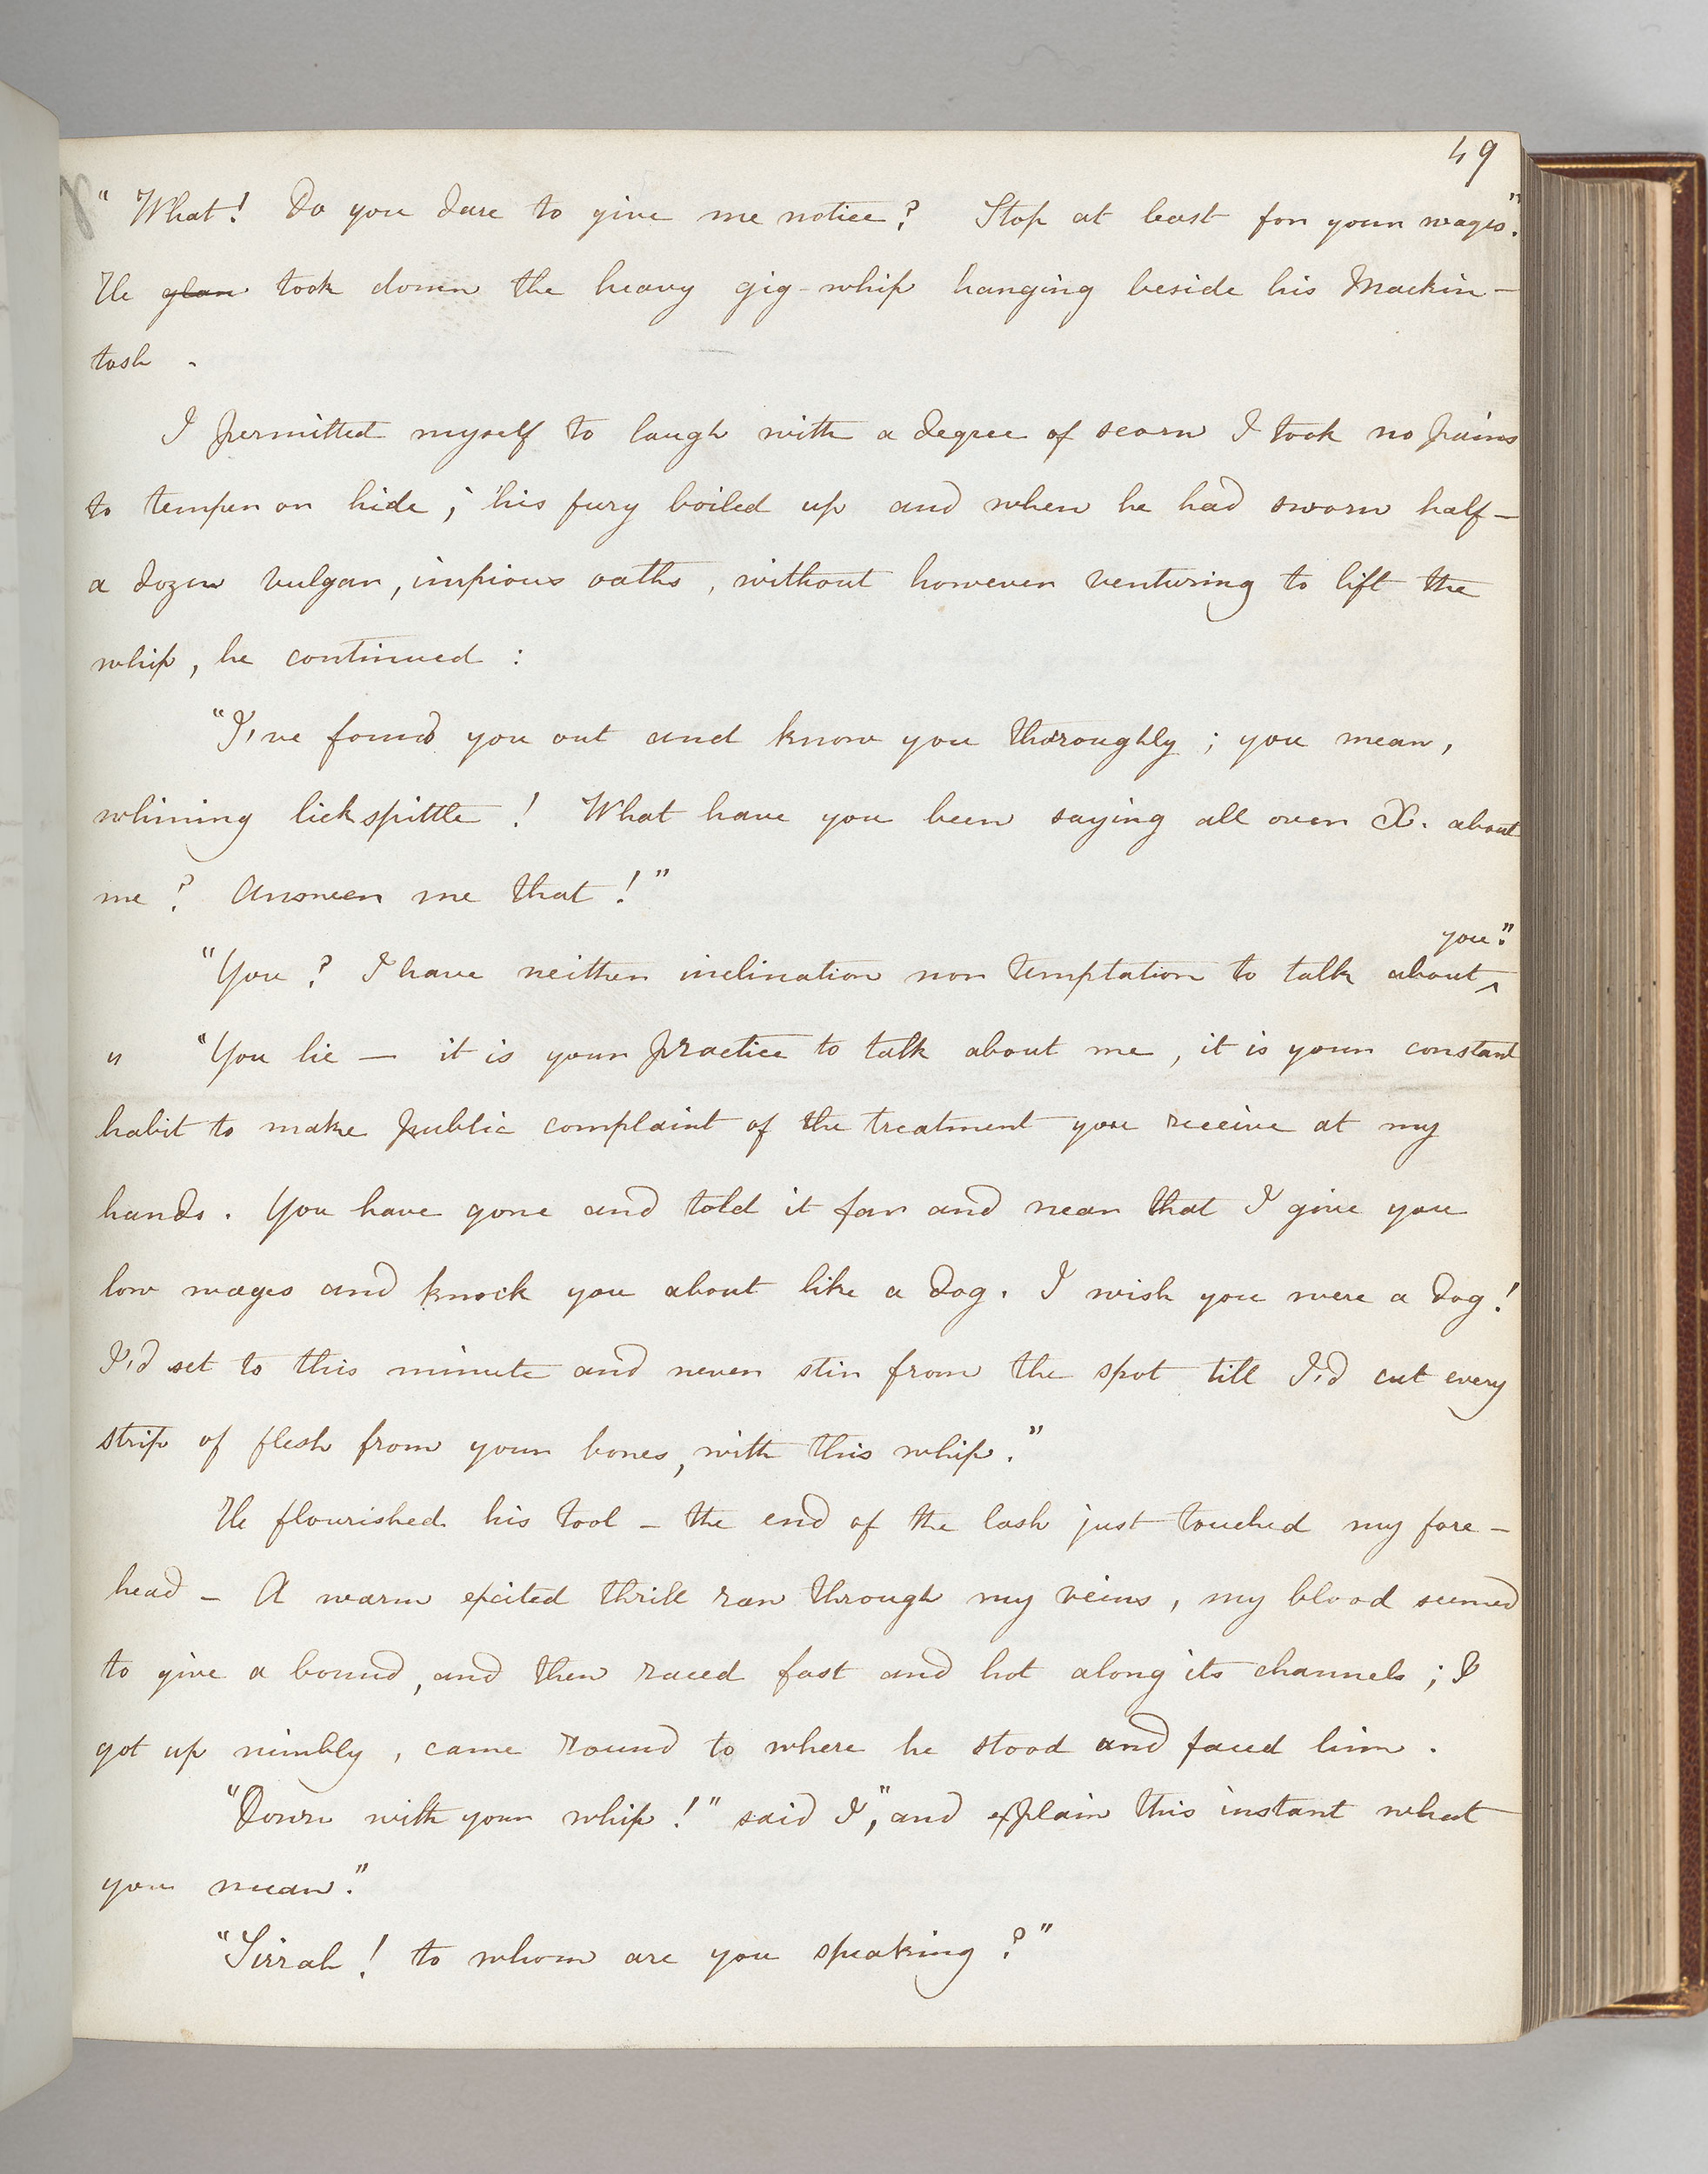 49
"What! Do you dare to give me notice? Stop at least for your wages."
He glan took down the heavy gig-whip hanging beside his Mackin-
tosh.
I permitted myself to laugh with a degree of scorn I took no pains
to temper or hide; his fury boiled up and when he had sworn half-
a dozen vulgar, impious oaths, without however venturing to lift the
whip, he continued:
"I've found you out and know you thoroughly; you mean,
whining lickspittle! What have you been saying all over X. about
me? Answer me that!"
"You? I have neither inclination nor temptation to talk about you."
" "You lie — it is your practice to talk about me, it is your constant
habit to make public complaint of the treatment you receive at my
hands. You have gone and told it far and near that I give you
low wages and knock you about like a dog. I wish you were a dog!
I'd set to this minute and never stir from the spot till I'd cut every
strip of flesh from your bones, with this whip."
He flourished his tool – the end of the lash just touched my fore-
head – A warm excited thrill ran through my veins, my blood seemed
to give a bound, and then raced fast and hot along its channels; I
got up nimbly, came round to where he stood and faced him.
"Down with your whip!" said I, "and explain this instant what
you mean."
"Sirrah! to whom are you speaking?"